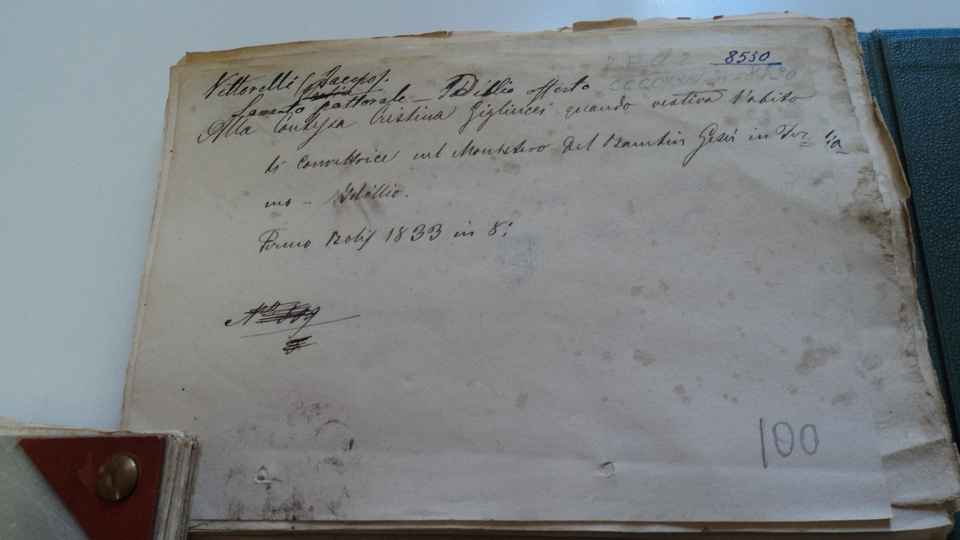 8530
Vittorelli (Jacopo).
Lamento pattorale - Idillio offerto
Alla Contessa Cristina Gigliucci quando vestiva l'abito
di Convittrice nel Monistero del Bambin Gesù in Fer
mo - Idillio.
Fermo Bolis 1833 in 8°
No
100